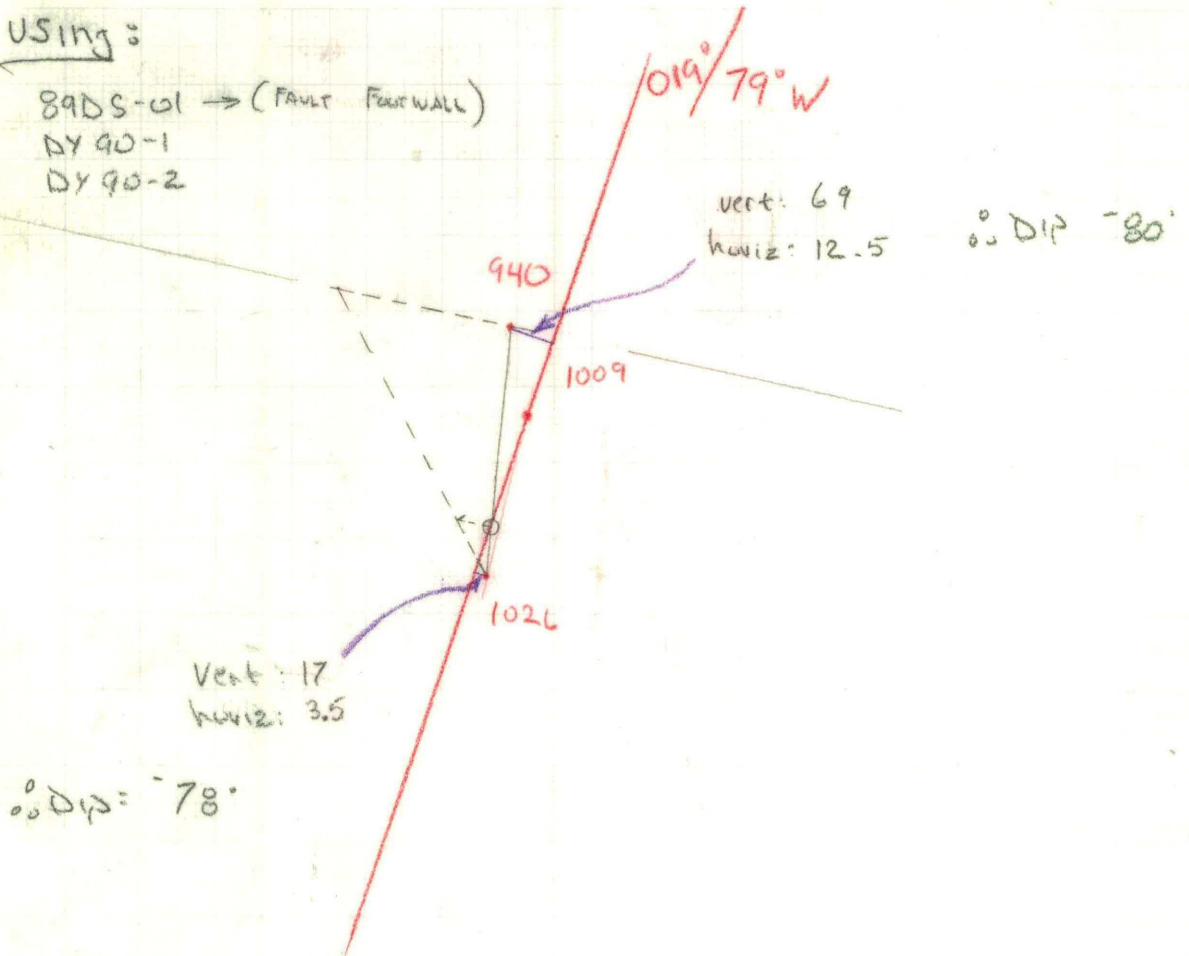 Using:
89DS-01 → (FAULT FOOTWALL)
DY 90-1
DY 90-2
019°/79° W
vert: 69
horiz: 12.5
∴ DIP -80°
940
1009
1026
Vert: 17
horiz: 3.5
∴ Dip= -78°